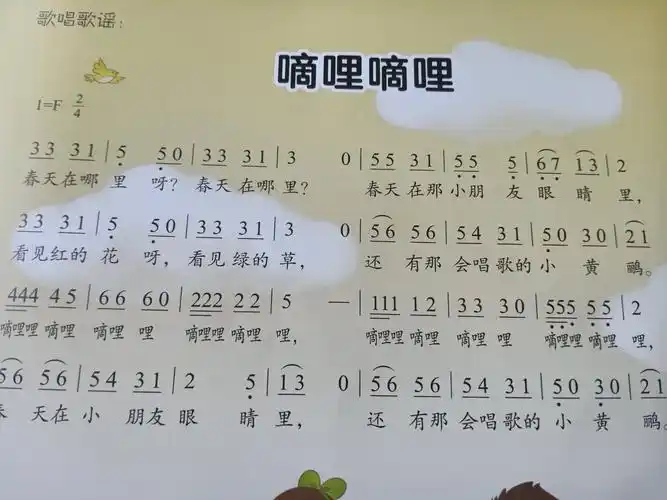 歌唱歌谣:
嘀哩嘀哩
1=F 2/4
3 3 3 1 | 5 5 0 | 3 3 3 1 | 3 0 | 5 5 3 1 | 5 5 5 | 6 7 1 3 | 2
春天在哪 里 呀? 春天在哪 里? 春天在那 小朋 友 眼 睛 里,
3 3 3 1 | 5 5 0 | 3 3 3 1 | 3 0 | 5 6 5 6 | 5 4 3 1 | 5 0 3 0 | 2 1
看见红的 花 呀, 看见绿的 草, 还 有那 会唱歌的 小 黄 鹂。
444 4 5 | 6 6 6 0 | 222 2 2 | 5 — | 111 1 2 | 3 3 3 0 | 555 5 5 | 2
嘀哩哩 嘀哩 嘀哩 哩 嘀哩哩 嘀哩 哩, 嘀哩哩 嘀哩 嘀哩 哩 嘀哩哩 嘀哩 哩,
5 6 5 6 | 5 4 3 1 | 2 5 | 1 3 0 | 5 6 5 6 | 5 4 3 1 | 5 0 3 0 | 2 1
天在 小 朋友 眼 睛 里, 还 有那 会唱歌的 小 黄 鹂。